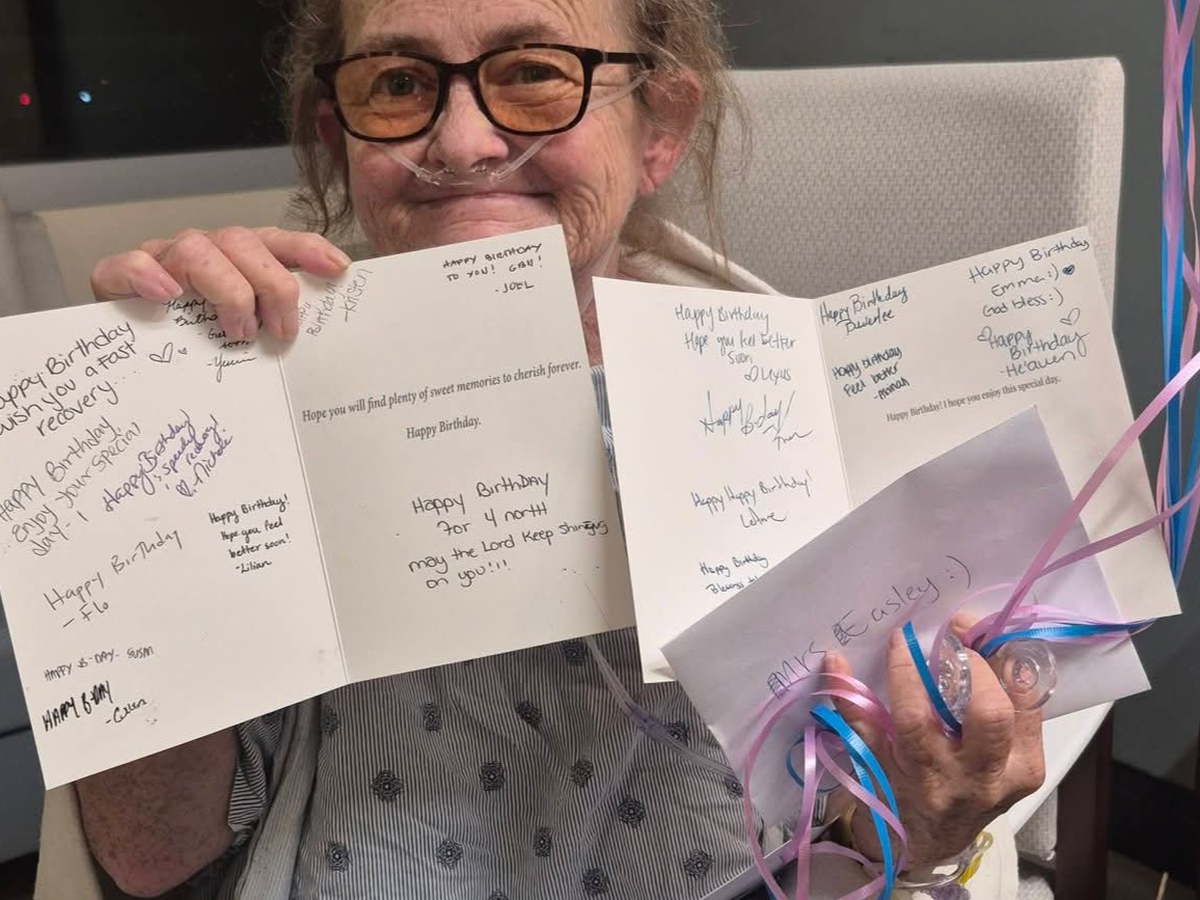 Happy Birthday
wish you a fast
recovery...
Happy Birthday,
enjoy your special
day - !
Happy Birthday
& speedy
recovery!
- Nichole
Happy Birthday
- Flo
Happy Birthday!
Hope you feel
better soon!
- Lilian
HAPPY B-DAY - SUSAN
HAPPY B-DAY
Happy
Birthday
- Kristen
HAPPY BIRTHDAY
TO YOU! GBU!
- JOEL
Hope you will find plenty of sweet memories to cherish forever.
Happy Birthday.
Happy BirthDay
For 4 north
may the Lord Keep Shinging
on you!!!
Happy Birthday
Hope you feel better
soon
Lexus
Happy B-day!
Happy Happy Birthday!
Happy Birthday
Happy Birthday
Happy birthday
Feel better
Happy Birthday
Emma :)
God bless :)
Happy
Birthday
- He'aven
Happy Birthday! I hope you enjoy this special day.
Mrs Easley :)